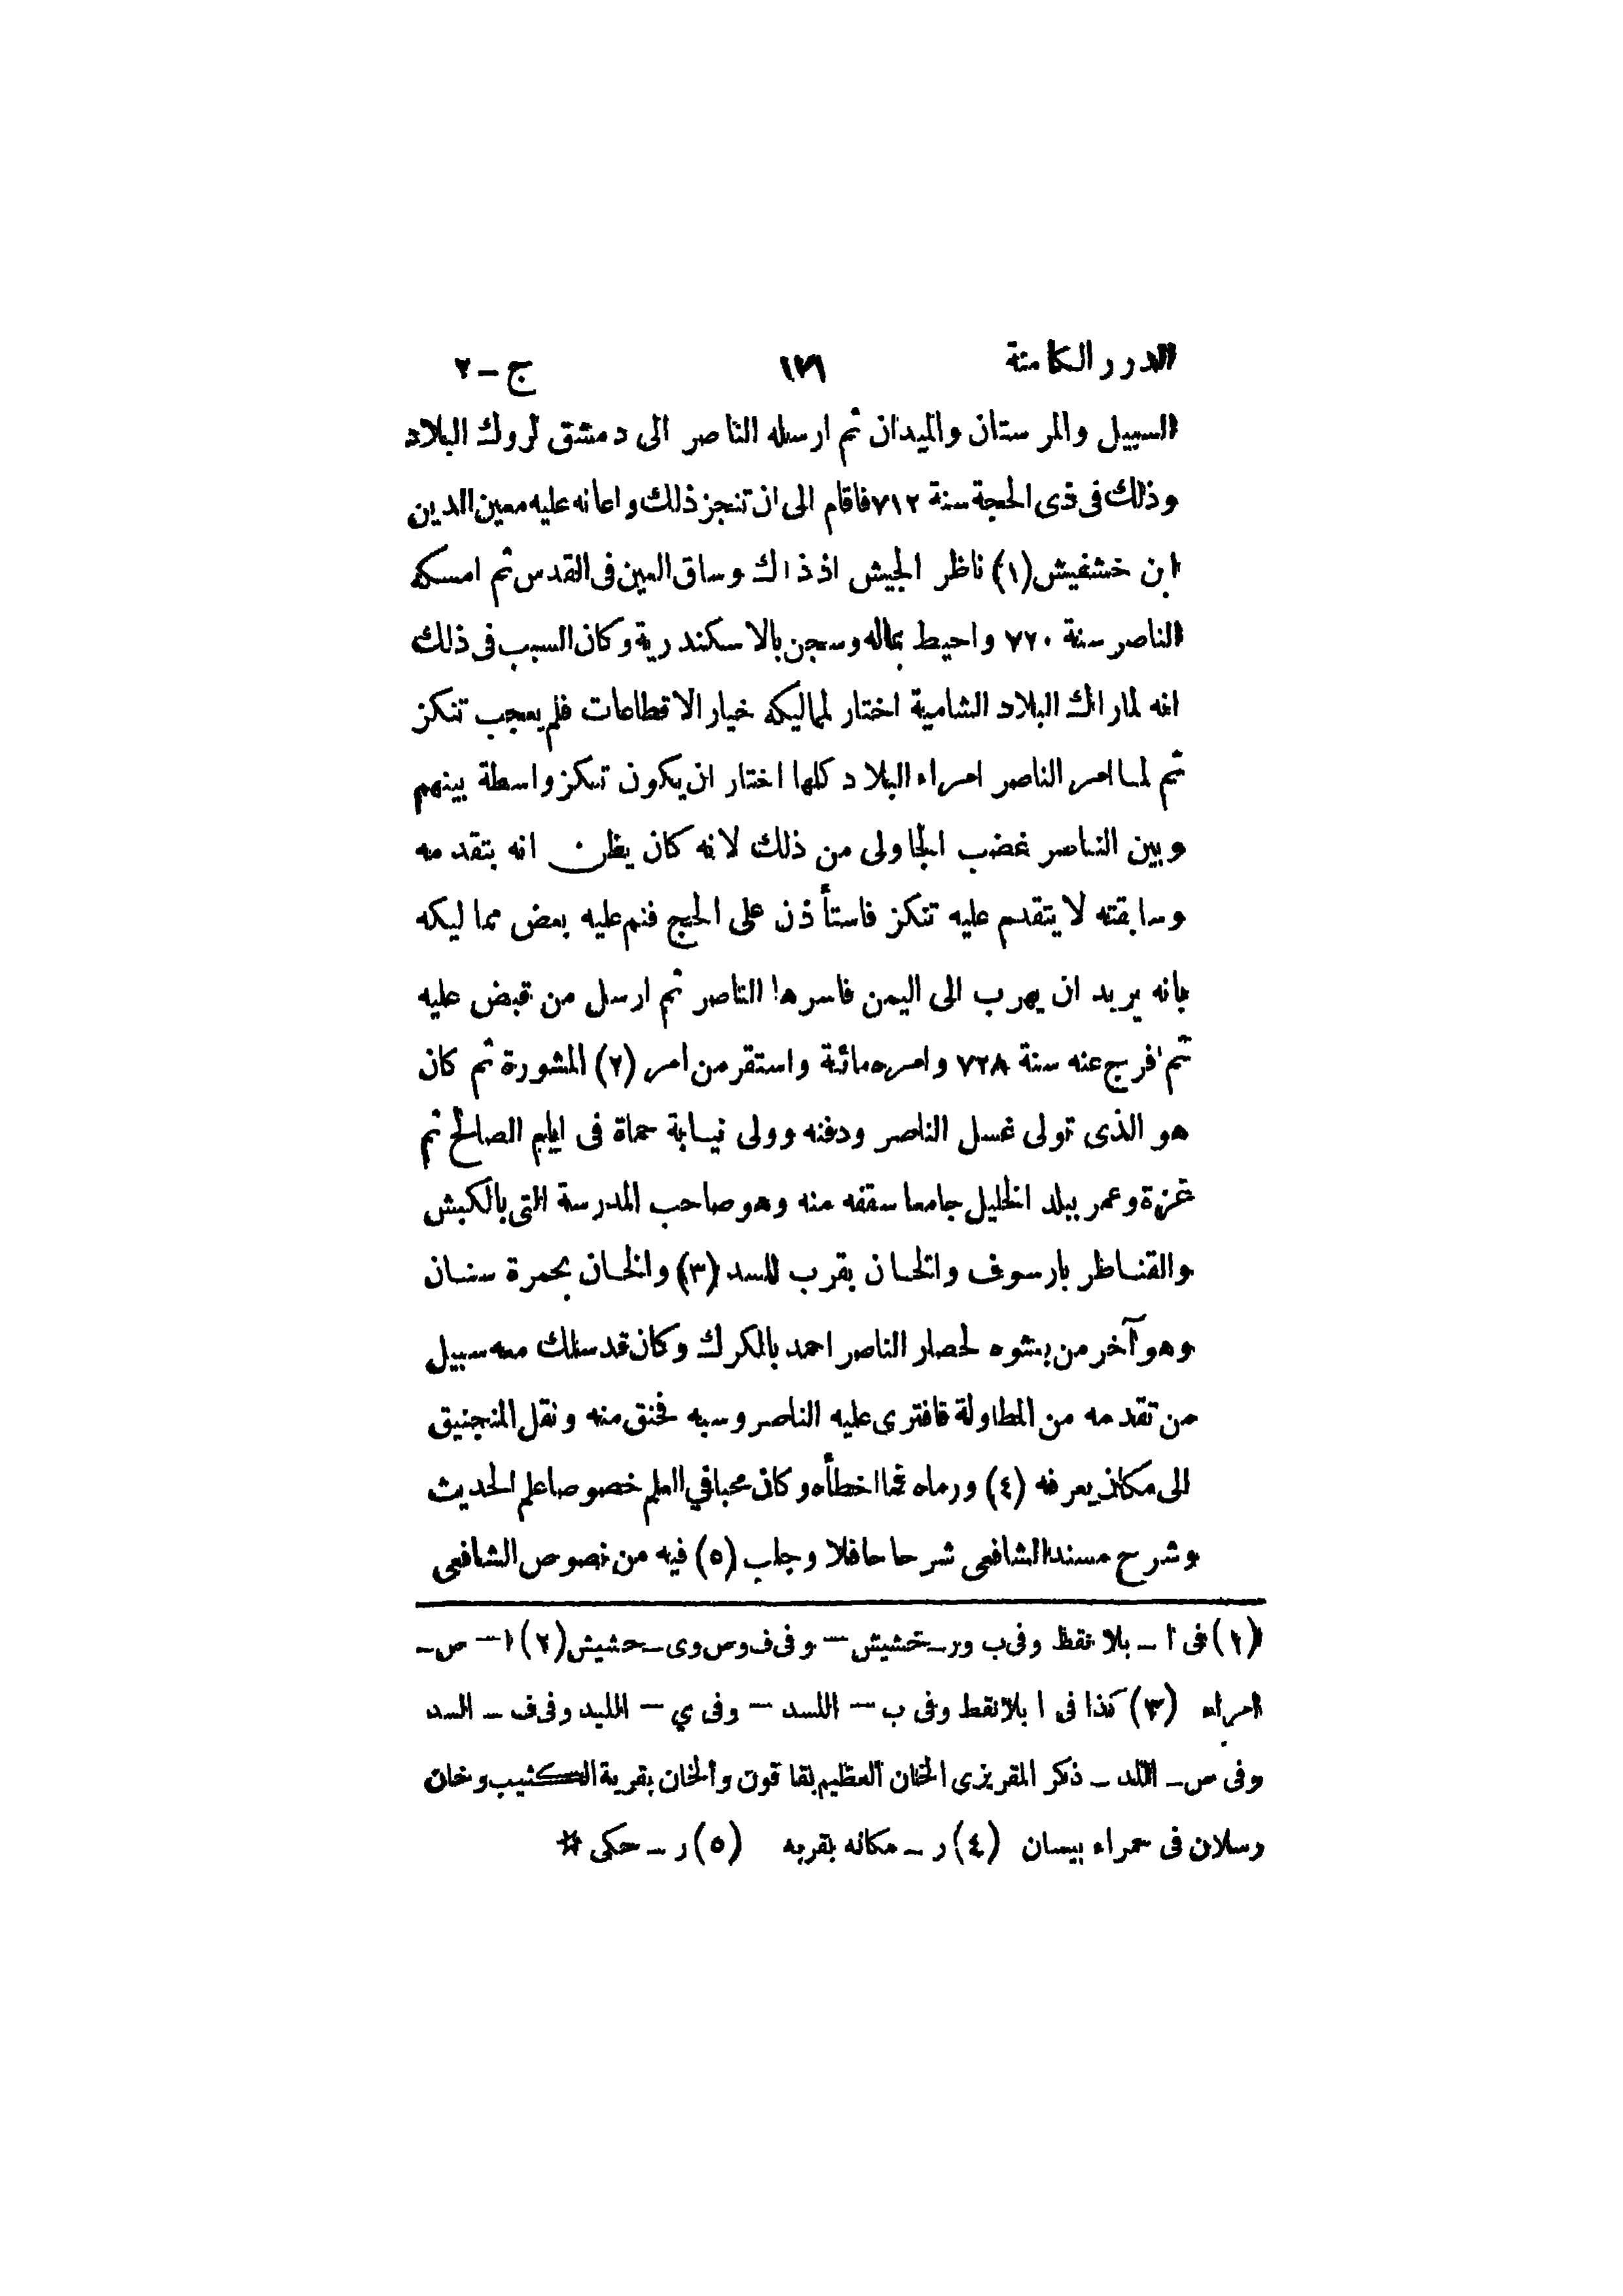 الدرر الكامنة ١٧١ ج – ٢
السبيل والمرستان والميدان ثم ارسله الناصر الى دمشق لروك البلاد
وذلك فى ذى الحجة سنة ٧١٢ فاقام الى ان تنجز ذلك واعانه عليه معين الدين
ابن خشفيش (١) ناظر الجيش اذ ذاك وساق العين فى القدس ثم امسكه
الناصر سنة ٧٢٠ واحيط بماله وسجن بالاسكندرية وكان السبب فى ذلك
انه لما راك البلاد الشامية اختار لماليكه خيار الاقطاعات فلم يعجب تنكز
ثم لما امر الناصر امراء البلاد كلها اختار ان يكون تنكز واسطة بينهم
وبين الناصر غضب الجاولى من ذلك لانه كان يظن انه بتقدمه
وسابقته لا يتقدم عليه تنكز فاستأذن على الحج فنم عليه بعض مماليكه
بانه يريد ان يهرب الى اليمن فاسرها الناصر ثم ارسل من قبض عليه
ثم افرج عنه سنة ٧٢٨ وامره مائة واستقر من امر (٢) المشورة ثم كان
هو الذى تولى غسل الناصر ودفنه وولى نيابة حماة فى ايام الصالح ثم
غزة وعمر ببلد الخليل جامعا سقفه منه وهو صاحب المدرسة التى بالكبش
والقناطر بارسوف والخان بقرب للسد (٣) والخان بحمرة سنان
وهو آخر من بعثوه لحصار الناصر احمد بالكرك وكان قد سلك معه سبيل
من تقدمه من المطاولة فافترى عليه الناصر وسبه فحنق منه ونقل المنجنيق
الى مكان يعرفه (٤) ورماه فما اخطأه وكان محبا فى العلم خصوصا علم الحديث
وشرح مسند الشافعى شرحا حافلا وجلب (٥) فيه من نصوص الشافعى
(١) فى ا – بلا نقط وفى ب ور – خشيش – وفى ف وص وى – حشيش (٢) ا – ص –
امراء (٣) كذا فى ا بلا نقط وفى ب – اللسد – وفى ي – الليد وفى ف – السد
وفى ص – اللد – ذكر المقريزى الخان العظيم بقاقون والخان بقرية الكثيب وخان
رسلان فى حمراء بيسان (٤) ر – مكانه بقربه (٥) ر – حكى *